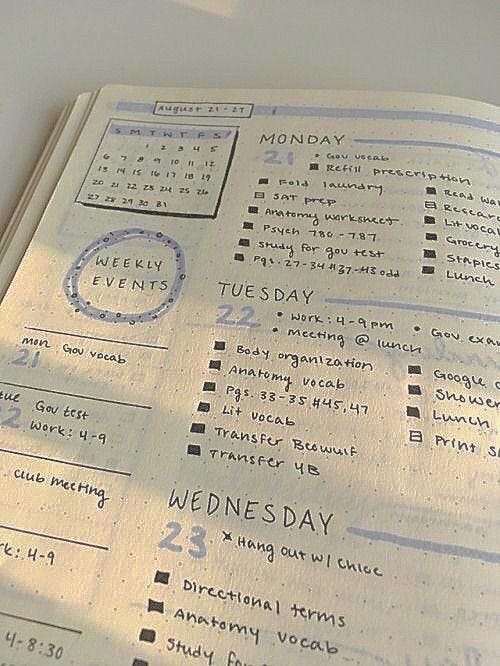 August 21-27
S M T W T F S
1 2 3 4 5
6 7 8 9 10 11 12
13 14 15 16 17 18 19
20 21 22 23 24 25 26
27 28 29 30 31
WEEKLY
EVENTS
mon Gov vocab
21
Gov test
work: 4-9
club meeting
4-9
4-8:30
MONDAY
21 • Gov vocab
Refill prescription
Fold laundry
SAT prep
Anatomy worksheet
Psych 780-787
Study for gov test
Pgs. 27-34 #37-43 odd
Read
Lit vocab
Grocery
Staples
Lunch
TUESDAY
22 • work: 4-9pm • Gov
• meeting @ lunch
Body organization
Anatomy vocab
Pgs. 33-35 #45,47
Lit vocab
Transfer Beowulf
Transfer 4B
Google
Shower
Lunch
Print
WEDNESDAY
23 * Hang out w/ Chloe
Directional terms
Anatomy vocab
Study